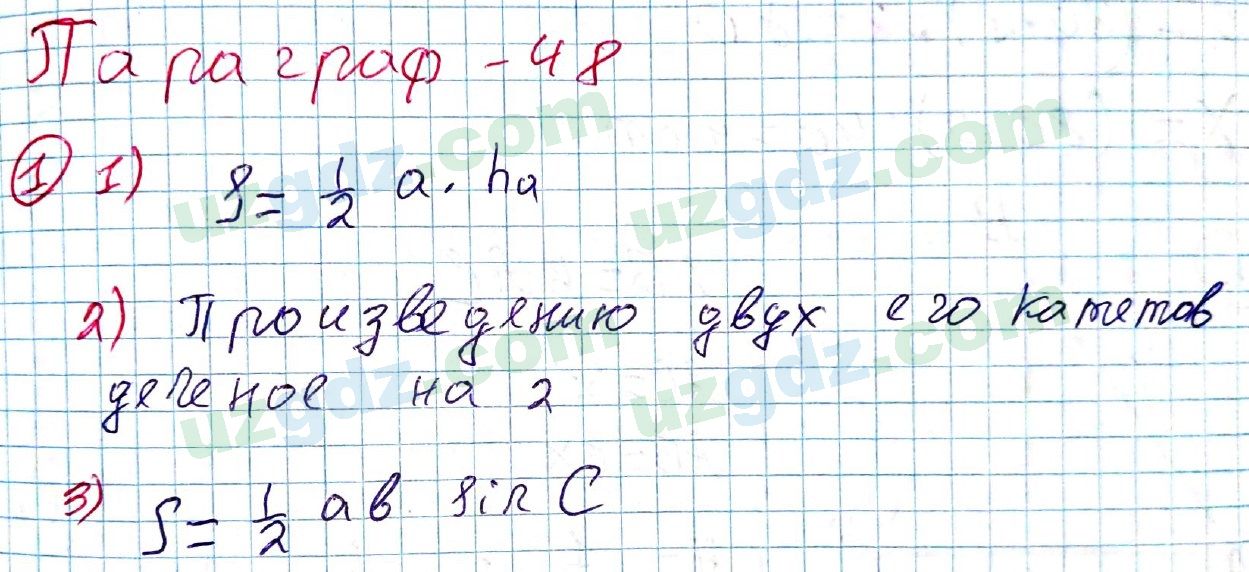 Параграф - 48
1 1) S = 1/2 a · ha
2) Произведению двух его катетов
деленое на 2
3) S = 1/2 ab sin C
uzgdz.com uzgdz.com
uzgdz.com uzgdz.com